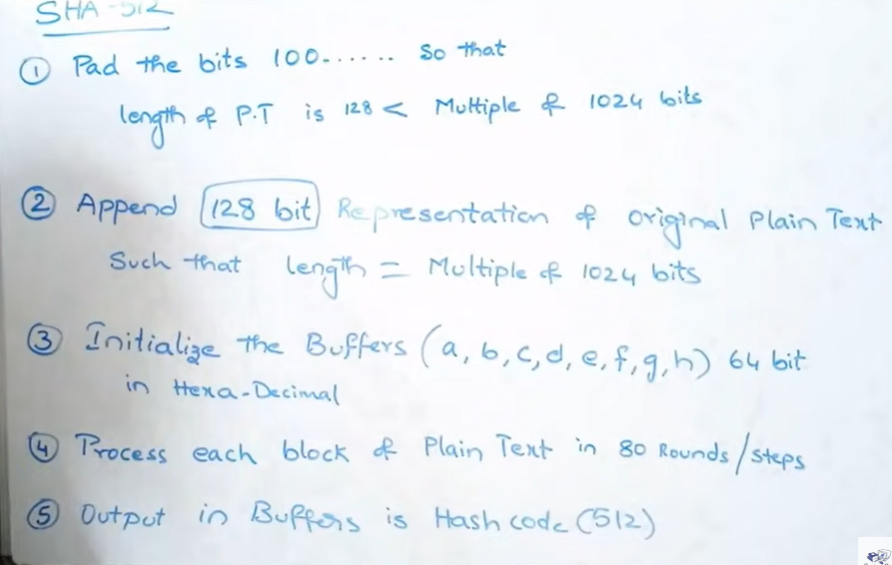 SHA-512
① Pad the bits 100....... so that
length of P.T is 128 < Multiple of 1024 bits
② Append 128 bit Representation of original Plain Text
Such that length = Multiple of 1024 bits
③ Initialize the Buffers (a, b, c, d, e, f, g, h) 64 bit
in Hexa-Decimal
④ Process each block of Plain Text in 80 Rounds/steps
⑤ Output in Buffers is Hash code (512)